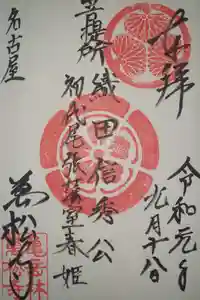 奉拝
菩提所 織田信秀公
初代尾張藩室春姫
名古屋
令和元年
九月十八日
萬松寺
亀岳林
萬松寺